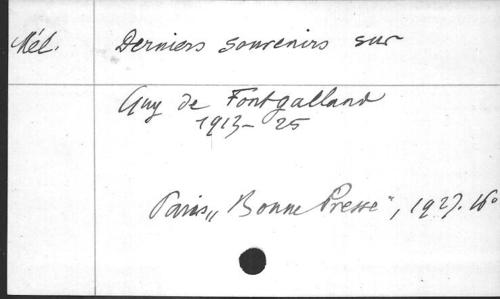 Mél. Derniers souvenirs sur
Guy de Fontgalland
1913-25
Paris, "Bonne Presse", 1927. 16°